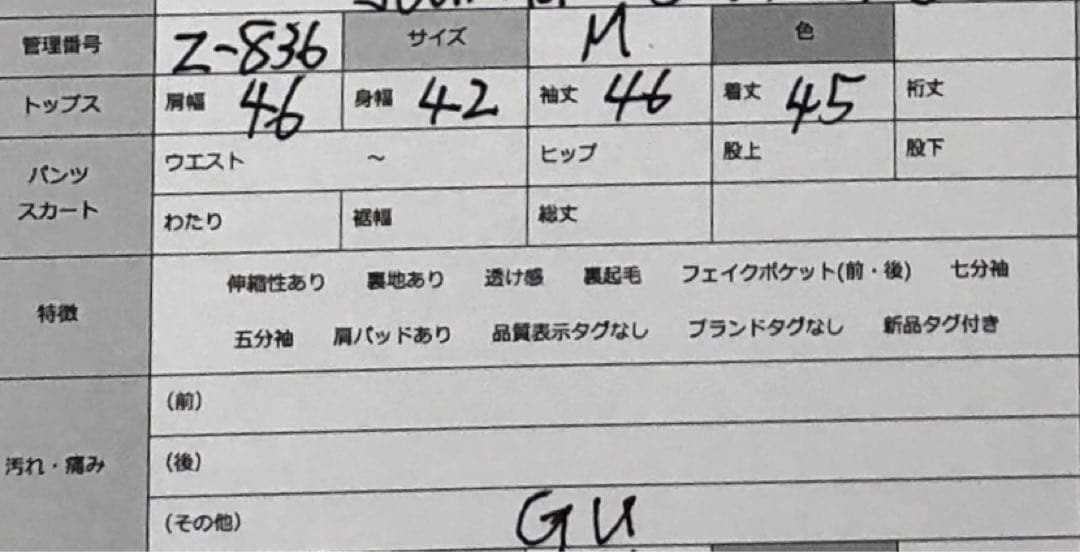 管理番号 Z-836 サイズ M 色
トップス 肩幅 46 身幅 42 袖丈 46 着丈 45 裄丈
パンツ スカート ウエスト ～ ヒップ 股上 股下
わたり 裾幅 総丈
特徴 伸縮性あり 裏地あり 透け感 裏起毛 フェイクポケット(前・後) 七分袖
五分袖 肩パッドあり 品質表示タグなし ブランドタグなし 新品タグ付き
汚れ・痛み (前)
(後)
(その他) GU